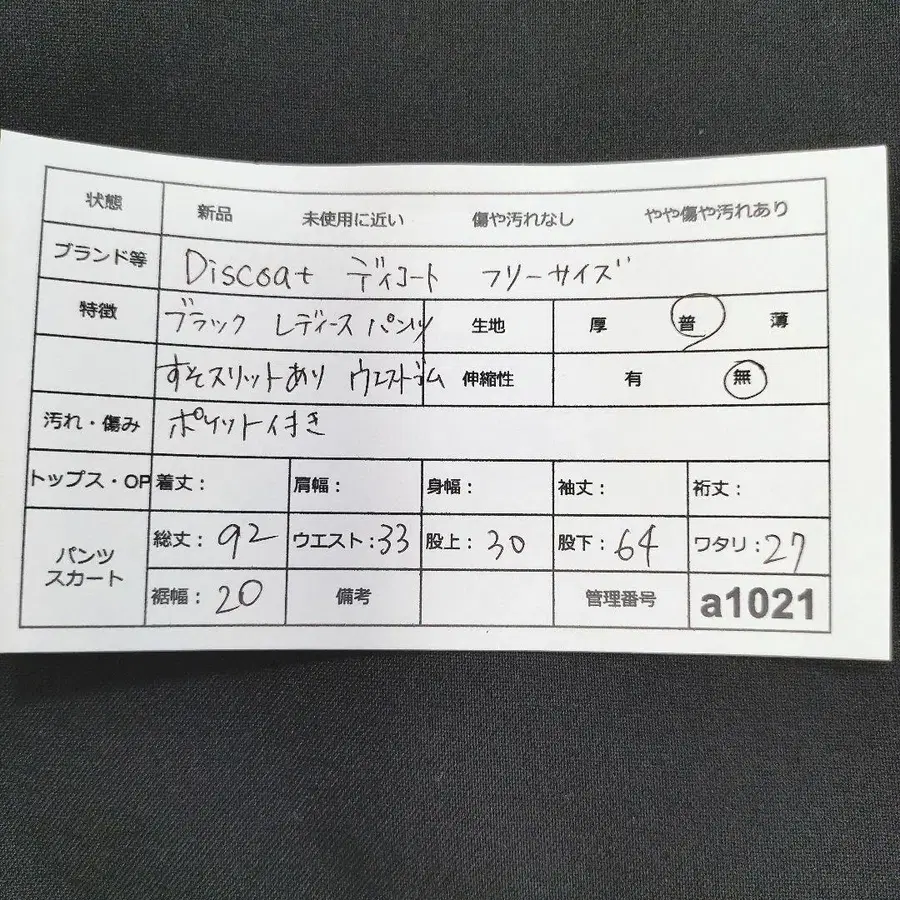 状態 新品 未使用に近い 傷や汚れなし やや傷や汚れあり
ブランド等 Discoat ディコート フリーサイズ
特徴 ブラック レディース パンツ 生地 厚 普 薄
すそスリットあり ウエストゴム 伸縮性 有 無
汚れ・傷み ポケット付き
トップス・OP 着丈: 肩幅: 身幅: 袖丈: 裄丈:
パンツ スカート 総丈: 92 ウエスト: 33 股上: 30 股下: 64 ワタリ: 27
裾幅: 20 備考 管理番号 a1021